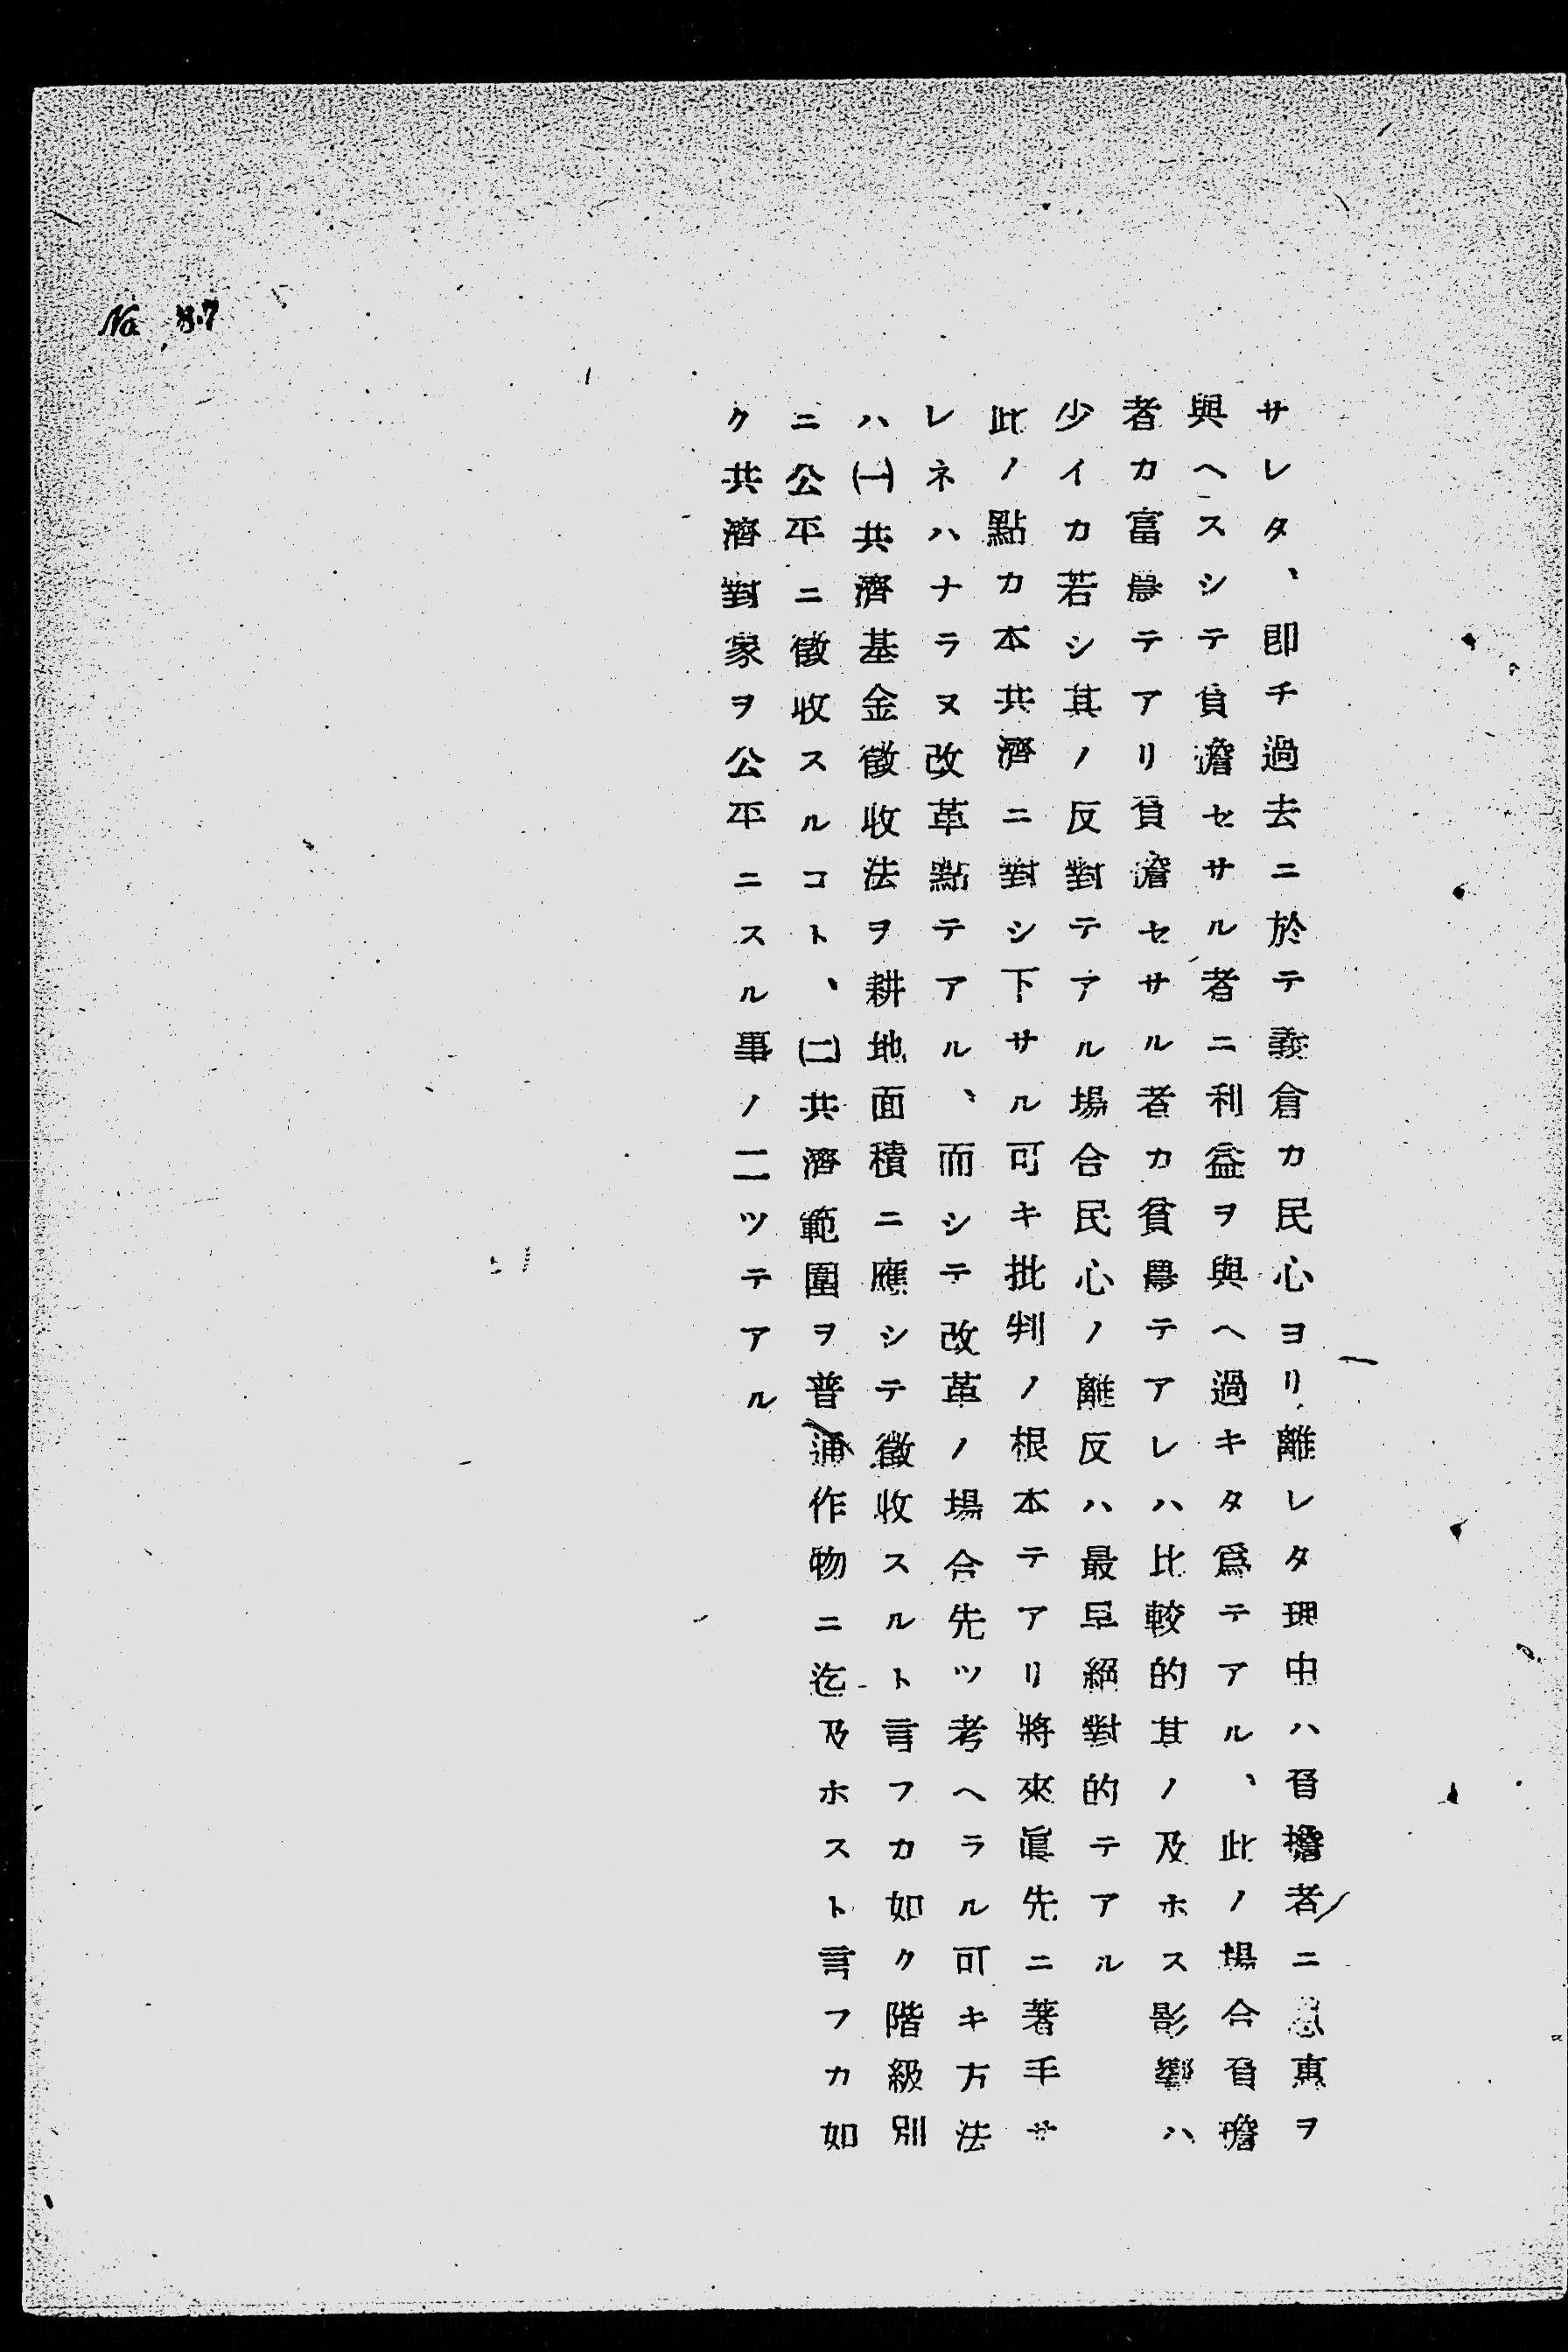 サレタ、卽チ過去ニ於テ義倉カ民心ヨリ離レタ理由ハ負擔者ニ恩惠ヲ
與ヘスシテ負擔セサル者ニ利益ヲ與ヘ過キタ爲テアル、此ノ場合負擔
者カ富農テアリ負擔セサル者カ貧農テアレハ比較的其ノ及ホス影響ハ
少イカ若シ其ノ反對テアル場合民心ノ離反ハ最早絕對的テアル
此ノ點カ本共濟ニ對シ下サル可キ批判ノ根本テアリ將來眞先ニ著手サ
レネハナラヌ改革點テアル、而シテ改革ノ場合先ツ考ヘラル可キ方法
ハ㈠共濟基金徵收法ヲ耕地面積ニ應シテ徵收スルト言フカ如ク階級別
ニ公平ニ徵收スルコト、㈡共濟範圍ヲ普通作物ニ迄及ホスト言フカ如
ク共濟對象ヲ公平ニスル事ノ二ツテアル
No 8.7